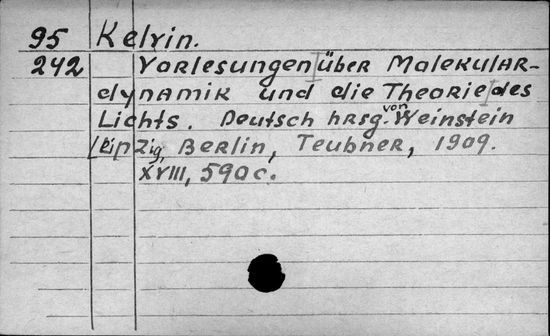 95 Kelvin.
242 Vorlesungen über Molekular-
dynamik und die Theorie des
Lichts. Deutsch hrsg. von Weinstein
Leipzig, Berlin, Teubner, 1909.
XVIII, 590 c.